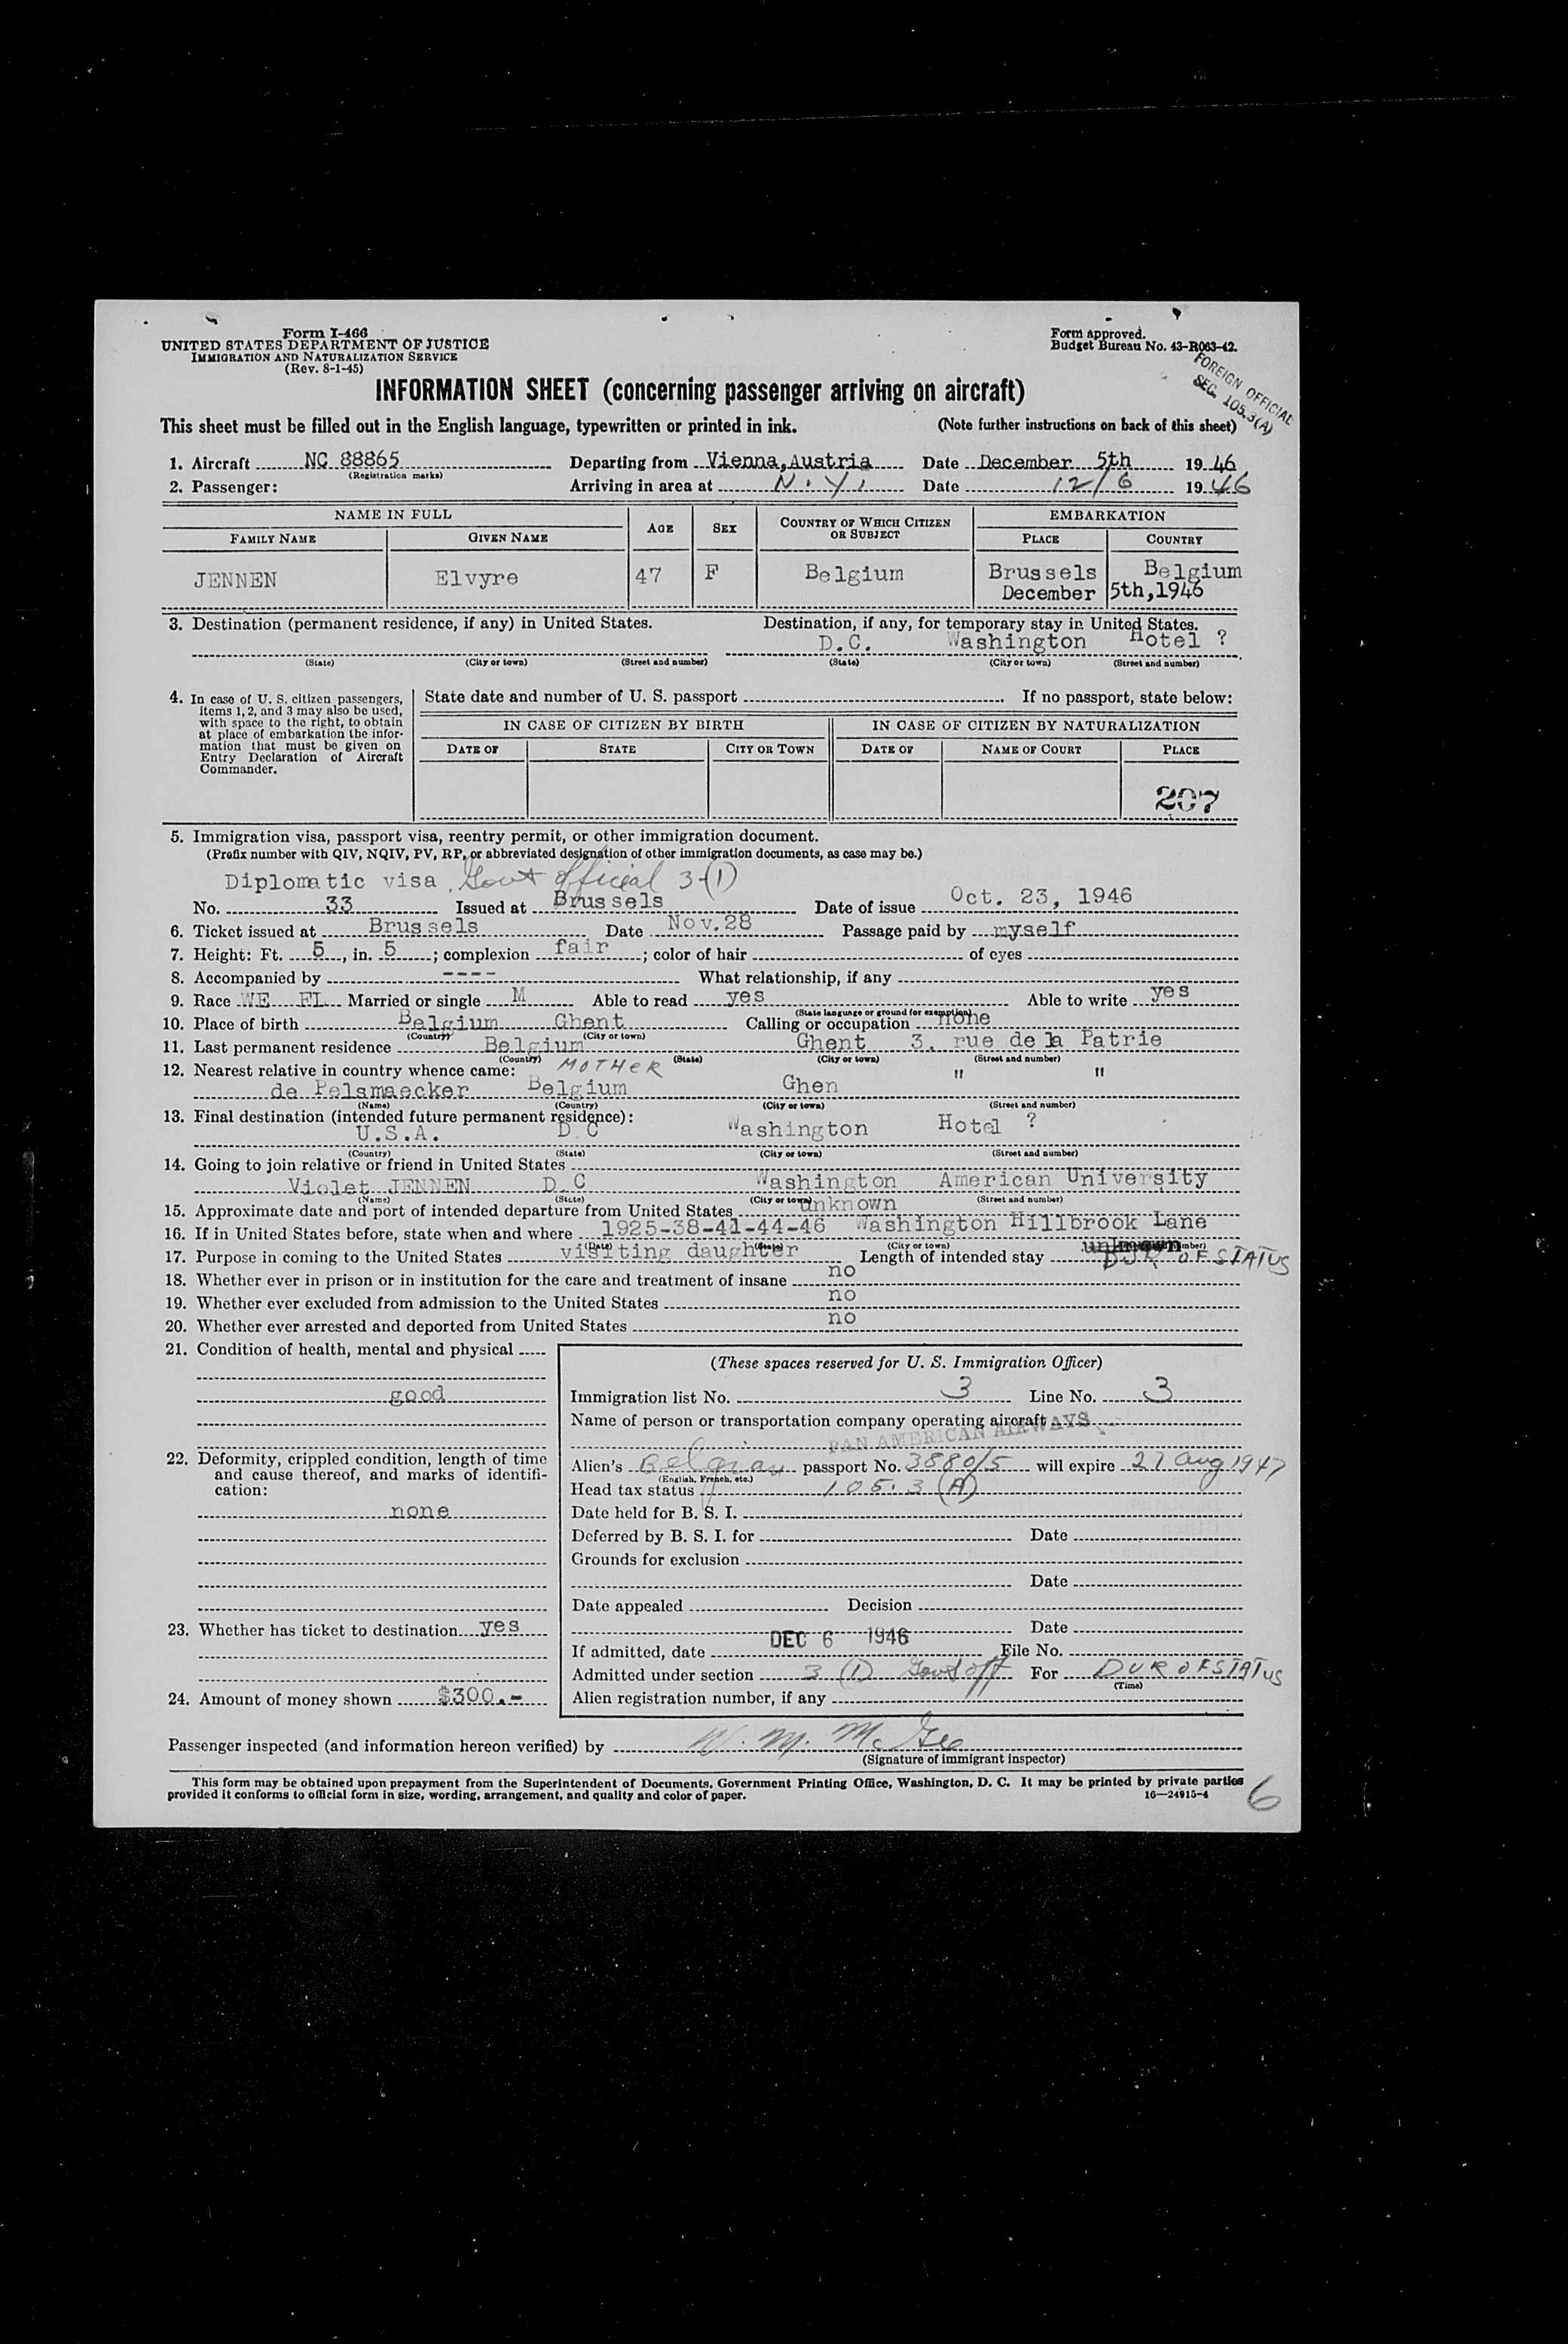 Form I-466
UNITED STATES DEPARTMENT OF JUSTICE
IMMIGRATION AND NATURALIZATION SERVICE
(Rev. 8-1-45)
Form approved.
Budget Bureau No. 43-R063-42.
FOREIGN OFFICIAL
SEC. 105.3(A)
INFORMATION SHEET (concerning passenger arriving on aircraft)
This sheet must be filled out in the English language, typewritten or printed in ink. (Note further instructions on back of this sheet)
1. Aircraft NC 88865 Departing from Vienna,Austria Date December 5th 1946
(Registration marks)
2. Passenger: Arriving in area at N.Y. Date 12/6 1946
NAME IN FULL AGE SEX COUNTRY OF WHICH CITIZEN OR SUBJECT EMBARKATION
FAMILY NAME GIVEN NAME PLACE COUNTRY
JENNEN Elvyre 47 F Belgium Brussels Belgium
December 5th,1946
3. Destination (permanent residence, if any) in United States. Destination, if any, for temporary stay in United States.
D.C. Washington Hotel ?
(State) (City or town) (Street and number) (State) (City or town) (Street and number)
4. In case of U. S. citizen passengers, items 1, 2, and 3 may also be used, with space to the right, to obtain at place of embarkation the information that must be given on Entry Declaration of Aircraft Commander.
State date and number of U. S. passport If no passport, state below:
IN CASE OF CITIZEN BY BIRTH IN CASE OF CITIZEN BY NATURALIZATION
DATE OF STATE CITY OR TOWN DATE OF NAME OF COURT PLACE
207
5. Immigration visa, passport visa, reentry permit, or other immigration document.
(Prefix number with QIV, NQIV, PV, RP, or abbreviated designation of other immigration documents, as case may be.)
Diplomatic visa Govt official 3-(1)
No. 33 Issued at Brussels Date of issue Oct. 23, 1946
6. Ticket issued at Brussels Date Nov.28 Passage paid by myself
7. Height: Ft. 5, in. 5; complexion fair; color of hair of eyes
8. Accompanied by ---- What relationship, if any
9. Race WE FL Married or single M Able to read yes Able to write yes
(State language or ground for exemption)
10. Place of birth Belgium Ghent Calling or occupation none
(Country) (City or town)
11. Last permanent residence Belgium Ghent 3, rue de la Patrie
(Country) (State) (City or town) (Street and number)
12. Nearest relative in country whence came: MOTHER
de Pelsmaecker Belgium Ghen " "
(Name) (Country) (City or town) (Street and number)
13. Final destination (intended future permanent residence):
U.S.A. D C Washington Hotel ?
(Country) (State) (City or town) (Street and number)
14. Going to join relative or friend in United States
Violet JENNEN D.C Washington American University
(Name) (State) (City or town) (Street and number)
15. Approximate date and port of intended departure from United States unknown
16. If in United States before, state when and where 1925-38-41-44-46 Washington Hillbrook Lane
(Date) (State) (City or town)
17. Purpose in coming to the United States visiting daughter Length of intended stay unknown DUR OF STATUS
18. Whether ever in prison or in institution for the care and treatment of insane no
19. Whether ever excluded from admission to the United States no
20. Whether ever arrested and deported from United States no
21. Condition of health, mental and physical
good
22. Deformity, crippled condition, length of time and cause thereof, and marks of identification:
none
23. Whether has ticket to destination yes
24. Amount of money shown $300.-
(These spaces reserved for U. S. Immigration Officer)
Immigration list No. 3 Line No. 3
Name of person or transportation company operating aircraft
PAN AMERICAN AIRWAYS
Alien's Belgian passport No. 3880/5 will expire 27 Aug 1947
(English, French, etc.)
Head tax status 105.3 (A)
Date held for B. S. I.
Deferred by B. S. I. for Date
Grounds for exclusion
Date
Date appealed Decision
Date
If admitted, date DEC 6 1946 File No.
Admitted under section 3 (1) Govt off For DUR OF STATUS
(Time)
Alien registration number, if any
Passenger inspected (and information hereon verified) by W. M. McGee
(Signature of immigrant inspector)
This form may be obtained upon prepayment from the Superintendent of Documents, Government Printing Office, Washington, D. C. It may be printed by private parties
provided it conforms to official form in size, wording, arrangement, and quality and color of paper. 16—24915-4
6